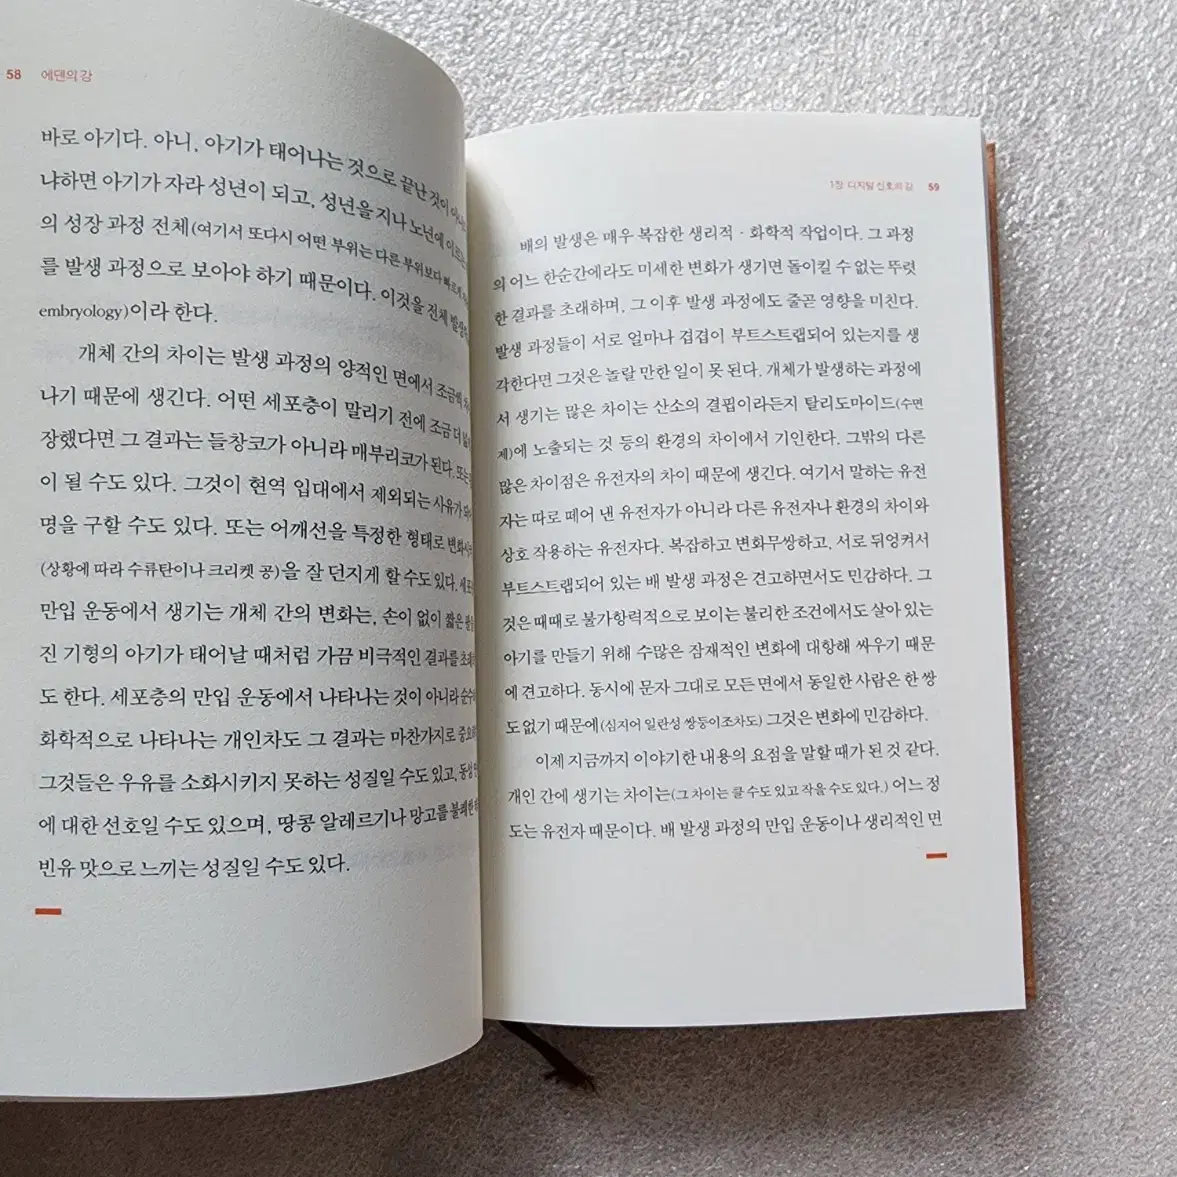 58 에덴의 강
바로 아기다. 아니, 아기가 태어나는 것으로 끝난 것이
냐하면 아기가 자라 성년이 되고, 성년을 지나 노년에
의 성장 과정 전체(여기서 또다시 어떤 부위는 다른 부위보다
를 발생 과정으로 보아야 하기 때문이다. 이것을 전체
embryology)이라 한다.
개체 간의 차이는 발생 과정의 양적인 면에서 조금씩
나기 때문에 생긴다. 어떤 세포층이 말리기 전에 조금 더
장했다면 그 결과는 들창코가 아니라 매부리코가 된다. 또는
이 될 수도 있다. 그것이 현역 입대에서 제외되는 사유가
명을 구할 수도 있다. 또는 어깨선을 특정한 형태로
(상황에 따라 수류탄이나 크리켓 공)을 잘 던지게 할 수도 있다.
만입 운동에서 생기는 개체 간의 변화는, 손이 없이 짧은
진 기형의 아기가 태어날 때처럼 가끔 비극적인 결과를
도 한다. 세포층의 만입 운동에서 나타나는 것이 아니라
화학적으로 나타나는 개인차도 그 결과는 마찬가지로
그것들은 우유를 소화시키지 못하는 성질일 수도 있고,
에 대한 선호일 수도 있으며, 땅콩 알레르기나 망고를 불쾌한
빈유 맛으로 느끼는 성질일 수도 있다.
1장 디지털 신호의 강 59
배의 발생은 매우 복잡한 생리적·화학적 작업이다. 그 과정
의 어느 한순간에라도 미세한 변화가 생기면 돌이킬 수 없는 뚜렷
한 결과를 초래하며, 그 이후 발생 과정에도 줄곧 영향을 미친다.
발생 과정들이 서로 얼마나 겹겹이 부트스트랩되어 있는지를 생
각한다면 그것은 놀랄 만한 일이 못 된다. 개체가 발생하는 과정에
서 생기는 많은 차이는 산소의 결핍이라든지 탈리도마이드(수면
제)에 노출되는 것 등의 환경의 차이에서 기인한다. 그밖의 다른
많은 차이점은 유전자의 차이 때문에 생긴다. 여기서 말하는 유전
자는 따로 떼어 낸 유전자가 아니라 다른 유전자나 환경의 차이와
상호 작용하는 유전자다. 복잡하고 변화무쌍하고, 서로 뒤엉켜서
부트스트랩되어 있는 배 발생 과정은 견고하면서도 민감하다. 그
것은 때때로 불가항력적으로 보이는 불리한 조건에서도 살아 있는
아기를 만들기 위해 수많은 잠재적인 변화에 대항해 싸우기 때문
에 견고하다. 동시에 문자 그대로 모든 면에서 동일한 사람은 한 쌍
도 없기 때문에(심지어 일란성 쌍둥이조차도) 그것은 변화에 민감하다.
이제 지금까지 이야기한 내용의 요점을 말할 때가 된 것 같다.
개인 간에 생기는 차이는(그 차이는 클 수도 있고 작을 수도 있다.) 어느 정
도는 유전자 때문이다. 배 발생 과정의 만입 운동이나 생리적인 면